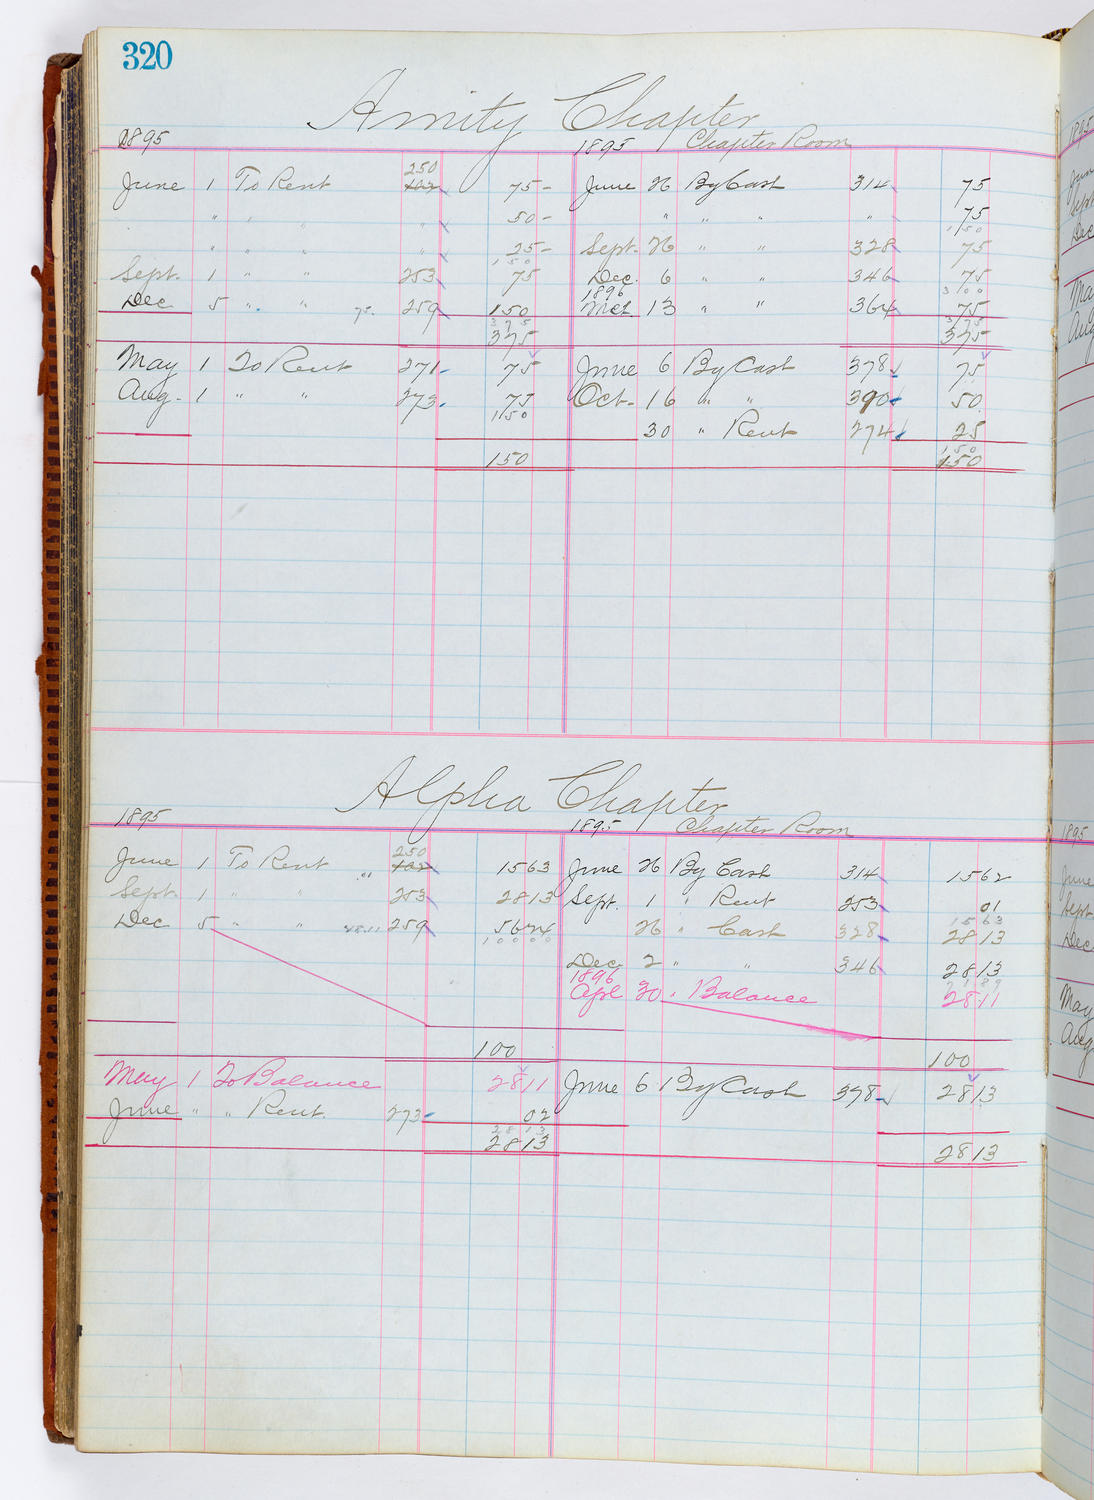 320
Amity Chapter
1895 1895 Chapter Room
250
June 1 To Rent 75 - June 26 By Cash 314 75
" " " " 50 - " " " " 75
150
" " " " 25 - Sept. 26 " " 328 75
150
Sept. 1 " " 253 75 Dec. 6 " " 346 75
1896 300
Dec 5 " " 75. 259 150 Mch 13 " " 364 75
375 375
375 375
May 1 To Rent 271 75 June 6 By Cash 378 75
Aug. 1 " " 273 75 Oct. 16 " " 390 50
150
30 " Rent 274 25
150
150 150
Alpha Chapter
1895 1895 Chapter Room
250
June 1 To Rent " 1563 June 26 By Cash 314 1562
Sept. 1 " " 253 2813 Sept. 1 " Rent 253 01
1563
Dec 5 " " 28.11 259 5624 26 " Cash 328 2813
10000
Dec. 2 " " 346 2813
1896
Apl 30 " Balance 2811
100 100
May 1 To Balance 2811 June 6 By Cash 378 2813
June " " Rent. 273 02
2813
2813 2813
1895
June
Sept
Dec
May
Aug
1895
June
Sept
Dec
May
Aug